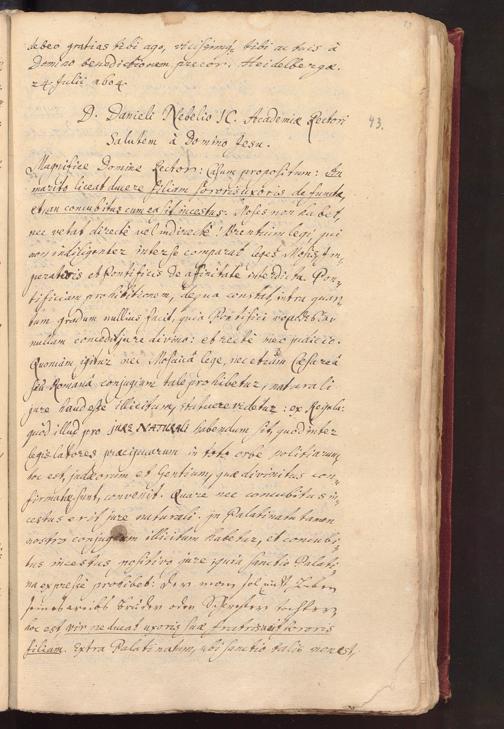 debeo gratias tibi ago, vicissimq; tibi ac tuis à
Domino benedictionem precor. Heidelbergæ.
24 Julii
D. Danieli Nebelio JC. Academiæ Rectori
43.
Salutem à Domino Jesu.
Magnifice Domine Rector: Casum propositum: An
marito liceat ducere filiam sororis uxoris defunctæ,
et an concubitus cum ea sit incestus: Moses non habet,
nec vetat directè vel indirectè: Brentium legi, qui
non indiligenter inter se comparat leges Mosis, Im-
peratoris et Pontificis de affinitate interdicta. Pon-
tificiam prohibitionem, de qua constat, intra quar-
tum gradum nullius facit, quia Pontifici
nullam concedit jure divino: et rectè meo judicio.
Quoniam igitur nec Mosaica lege, nec etiam Cæsarea
seu Romana conjugium tale prohibetur, naturali
jure haud esse illicitum, statuere videtur: ex Regula:
quod illud pro JURE NATURALI habendum sit, quod inter
legislatores præcipuarum in toto orbe politiarum,
hoc est, judæorum et Gentium, quæ divinitus con-
firmatæ sunt, convenit. Quare nec concubitus in-
cestus erit jure naturali. In Palatinatu tamen
nostro conjugium illicitum habetur, et concubi-
tus incestus positivo jure, quia sanctio Palati-
na expressè prohibet: Der man sol
seines weibs brüder oder Schwester tochter,
hoc est vir ne ducat uxoris suæ fratris aut sororis
filiam. Extra Palatinatum, ubi sanctio talis non est,